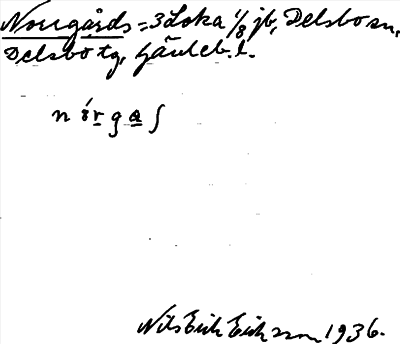 Norrgårds = 3 Loka 1/8 jb, Delsbo sn,
Delsbo tg, Gävleb. l.
Nils Erik Eriksson 1936.